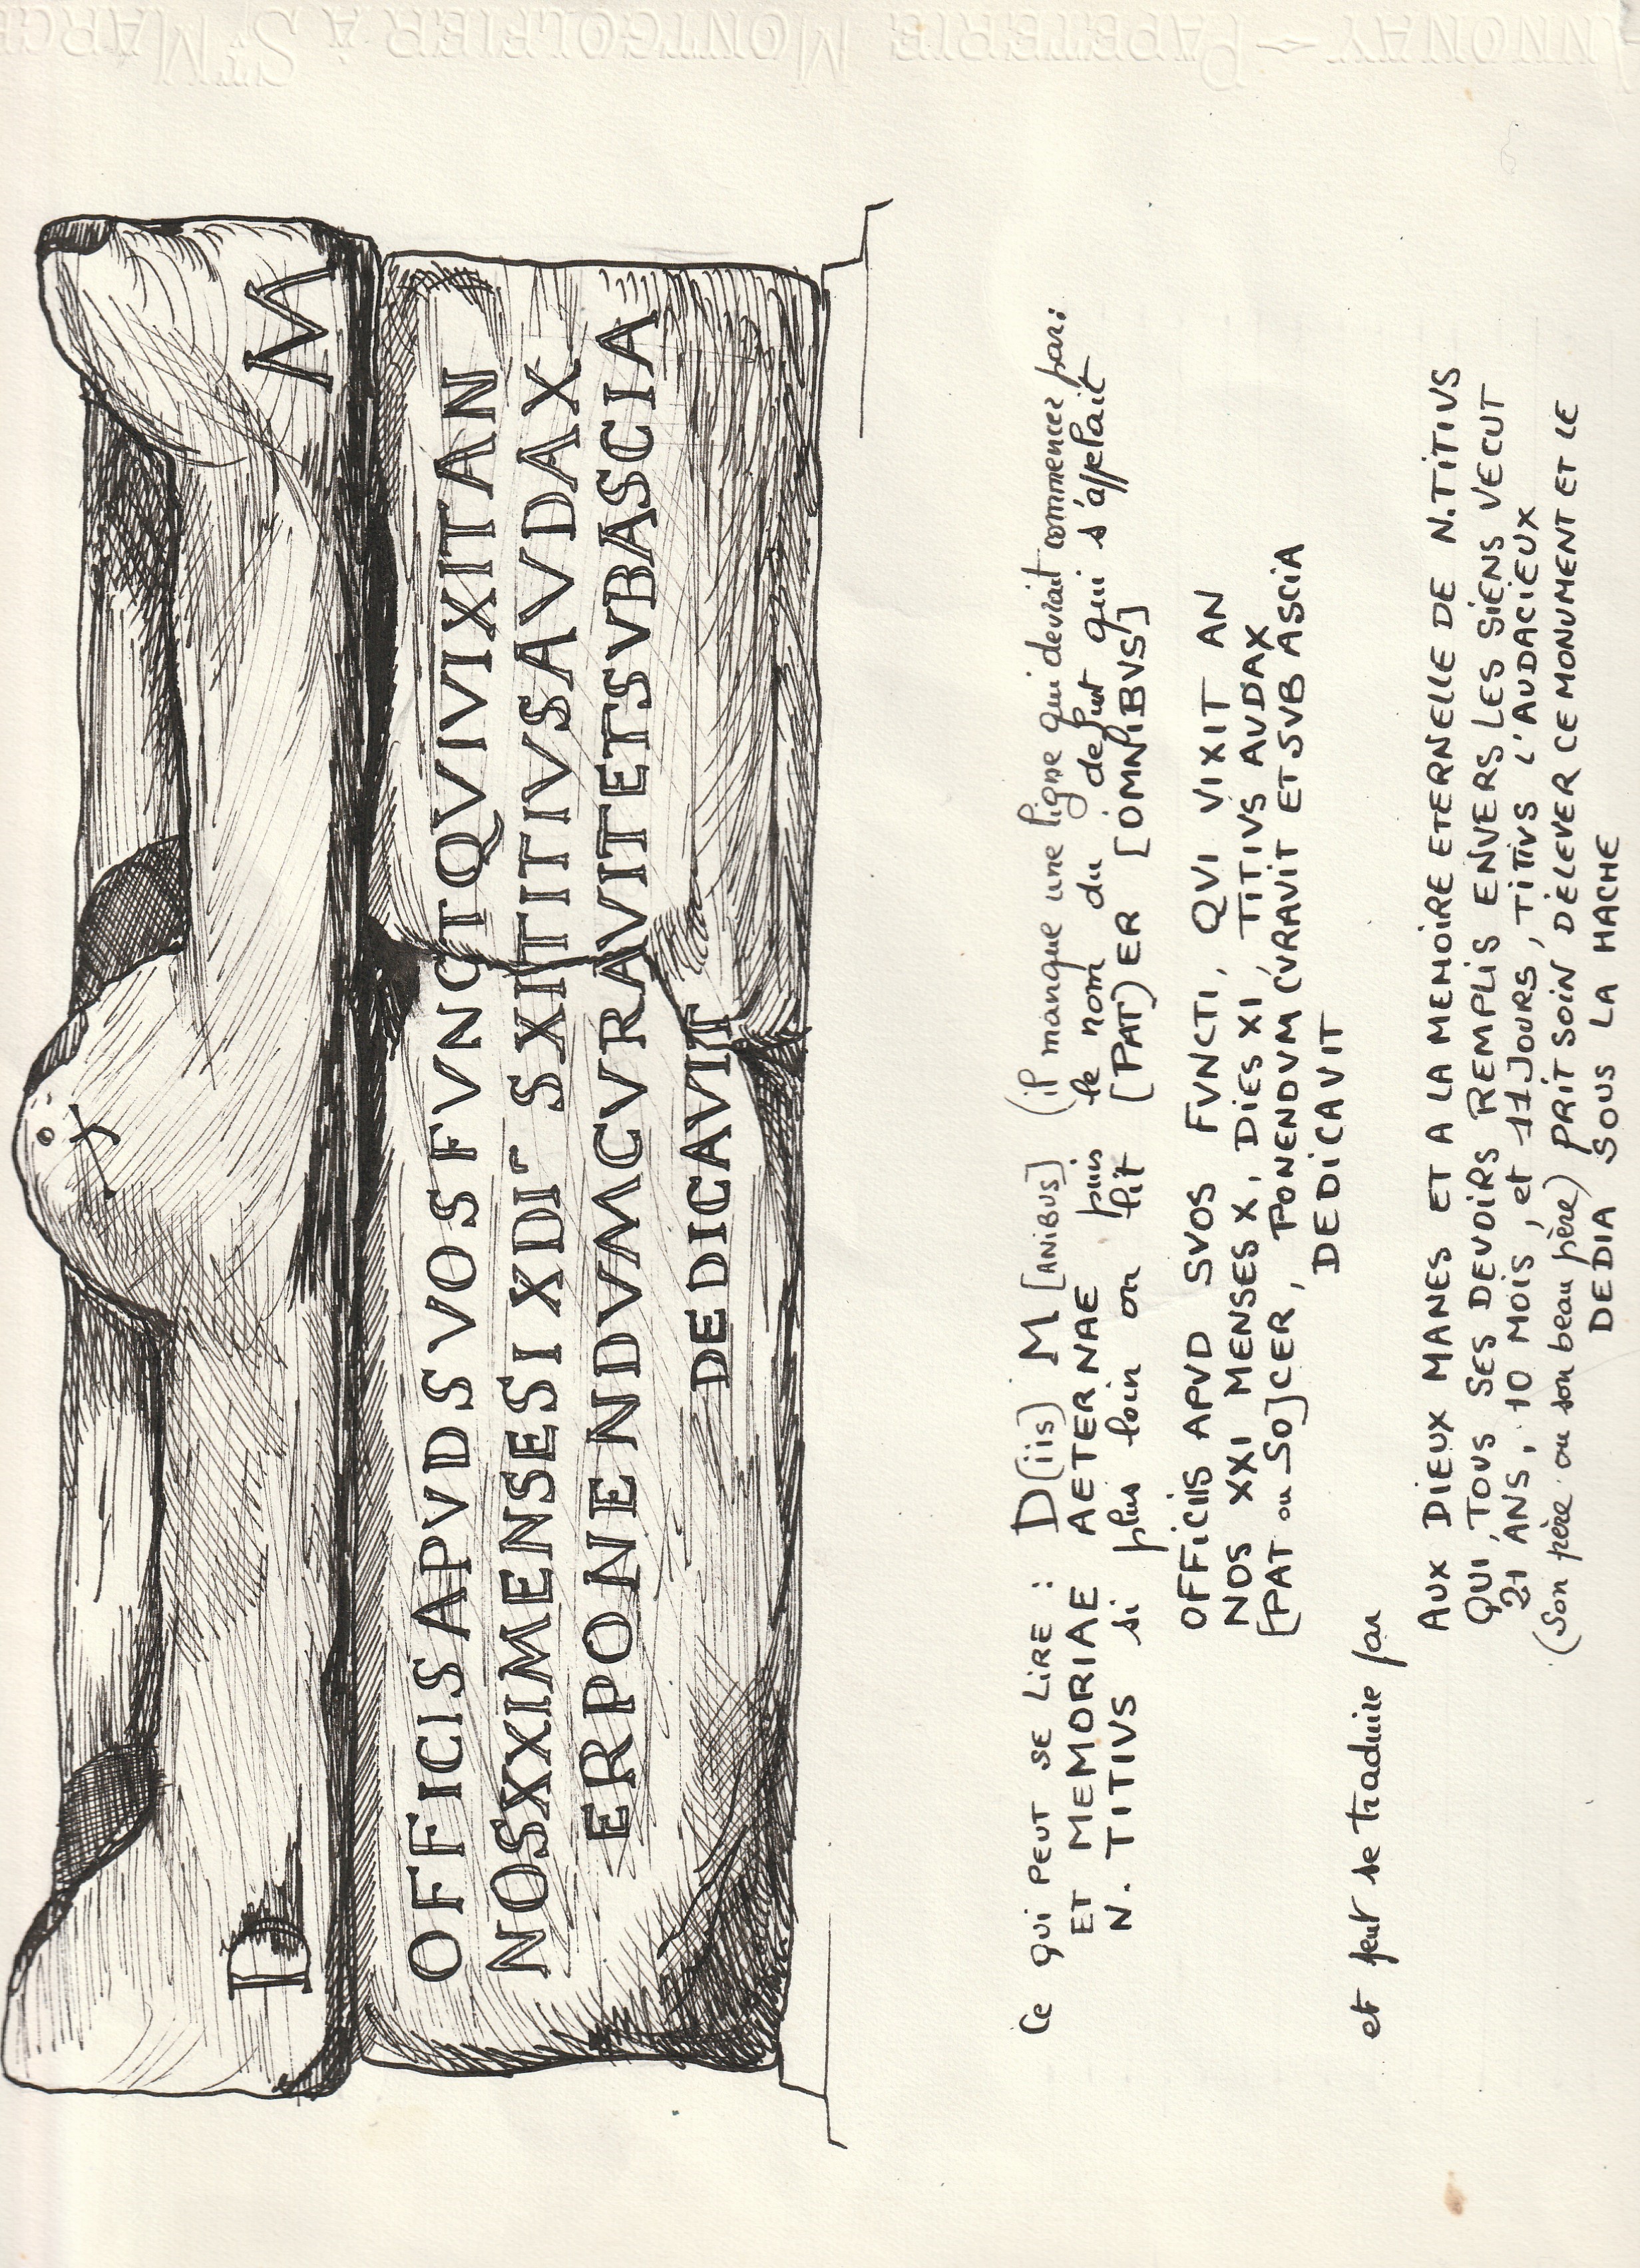 D M
OFFICISAPVDSVOSFVNCTQVIVIXITAN
NOSXXIMENSESIXDI SXITITIVSAVDAX
ERPONENDVMCVRAVITETSVBASCIA
DEDICAVIT
Ce qui PEUT SE LIRE : D(iis) M[ANIBUS] (il manque une ligne qui devait commencer par:
ET MEMORIAE AETERNAE puis le nom du defunt qui s'appelait
N. TITIVS si plus loin on lit [PAT)ER [OMNIBVS]
OFFICIIS APVD SVOS FVNCTI, QVI VIXIT AN
NOS XXI MENSES X, DIES XI, TITIVS AUDAX
[PAT ou SO]CER, PONENDVM CVRAVIT ET SVB ASCIA
DEDICAVIT
et peut se traduire par
AUX DIEUX MANES ET A LA MEMOIRE ETERNELLE DE N.TITIVS
QUI, TOUS SES DEVOIRS REMPLIS ENVERS LES SIENS VECUT
21 ANS, 10 MOIS, et 11 JOURS, TITIVS L'AUDACIEUX
(son père ou son beau père) PRIT SOIN D'ELEVER CE MONUMENT ET LE
DEDIA SOUS LA HACHE
ANNONAY - PAPETERIE MONTGOLFIER À ST MARCE